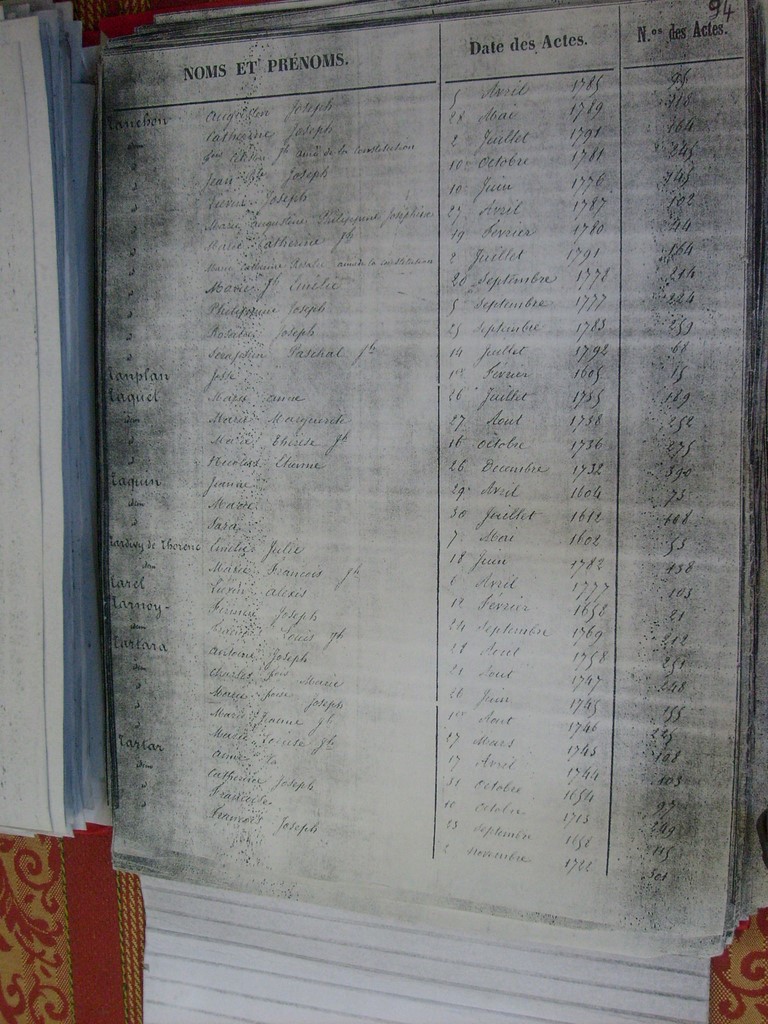 94
NOMS ET PRÉNOMS. Date des Actes. N.os des Actes.
Tanchon Augustin Joseph 5 Avril 1785 95
Catherine Joseph 28 Mai 1789
amé de la constitution 2 Juillet 1791 164
Jean Bte Joseph 10 Octobre 1781 245
Joseph 10 Juin 1776
Marie Augustine Philippine Joséphine 27 Avril 1787 102
Marie Catherine Jh 19 Février 1780 44
Marie Catherine Rosalie amé de la constitution 2 Juillet 1791 164
Marie Jh Emélie 20 Septembre 1778 214
Philippine Joseph 5 Septembre 1777 224
Rosalie Joseph 25 Septembre 1783 259
Séraphin Paschal Jh 14 Juillet 1792 68
Tanplan Josse 1er Février 1605 15
Taquel Marie Anne 26 Juillet 1735 189
idem Marie Marguerite 27 Aout 1738 252
Marie Thérèse Jh 16 Octobre 1736 275
Nicolas Etienne 26 Décembre 1732 390
Taquin Jeanne 29 Avril 1604 73
idem Marie 30 Juillet 1612 108
Sara 7 Mai 1602 53
Tardivy de Thorenc Emélie Julie 18 Juin 1782 138
idem Marie François Jh 6 Avril 1777 103
Tarel Alexis 12 Février 1658 21
Tarnoy Joseph 24 Septembre 1769 212
idem Louis Jh 21 Aout 1758 251
Tartara Antoine Joseph 21 Aout 1747 248
idem Charles fois Marie 20 Juin 1745 155
Marie Joseph 1er Aout 1746 225
Marie Jeanne Jh 27 Mars 1743 108
Marie Louise Jh 17 Avril 1744 103
Tartar Anne 31 Octobre 1654 97
idem Catherine Joseph 10 Octobre 1713 249
Francoise 23 Septembre 1652 115
François Joseph 2 Novembre 1722 301